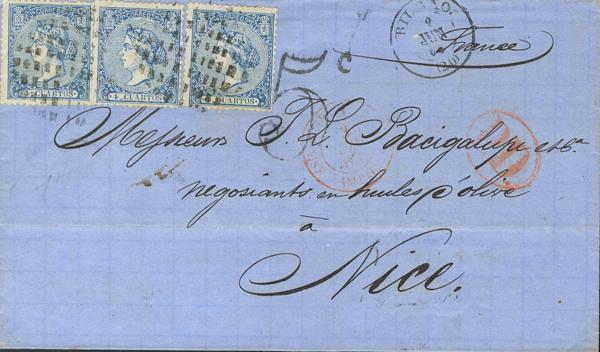 CORREOS CORREOS CORREOS
4 CUARTOS 4 CUARTOS 4 CUARTOS
BILBAO
9
JUN
(20)
France
Messieurs T. L. Bacigalupi et Cª
negosiants en huiles d'olive
à
Nice.